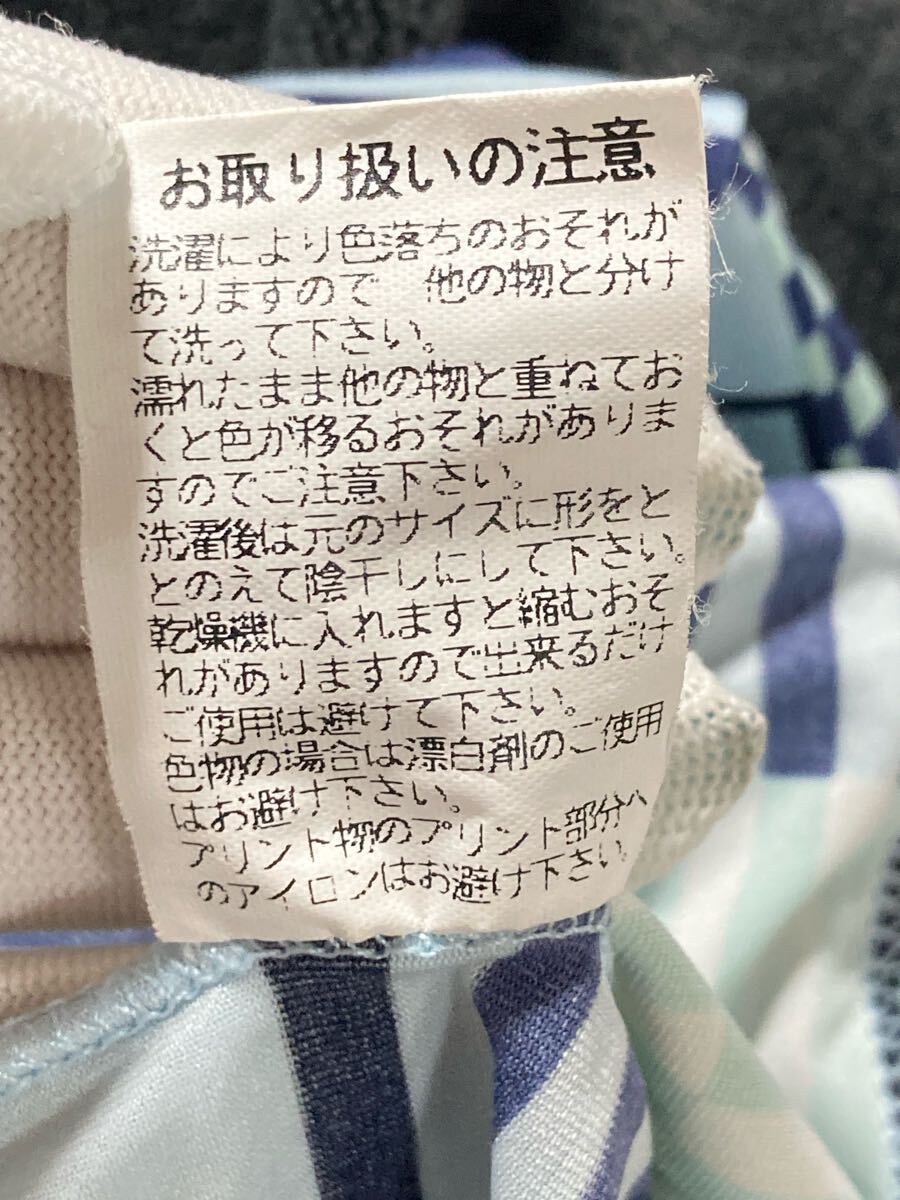 お取り扱いの注意
洗濯により色落ちのおそれが
ありますので 他の物と分け
て洗って下さい。
濡れたまま他の物と重ねてお
くと色が移るおそれがありま
すのでご注意下さい。
洗濯後は元のサイズに形をと
とのえて陰干しにして下さい。
乾燥機に入れますと縮むおそ
れがありますので出来るだけ
ご使用は避けて下さい。
色物の場合は漂白剤のご使用
はお避け下さい。
プリント物のプリント部分へ
のアイロンはお避け下さい